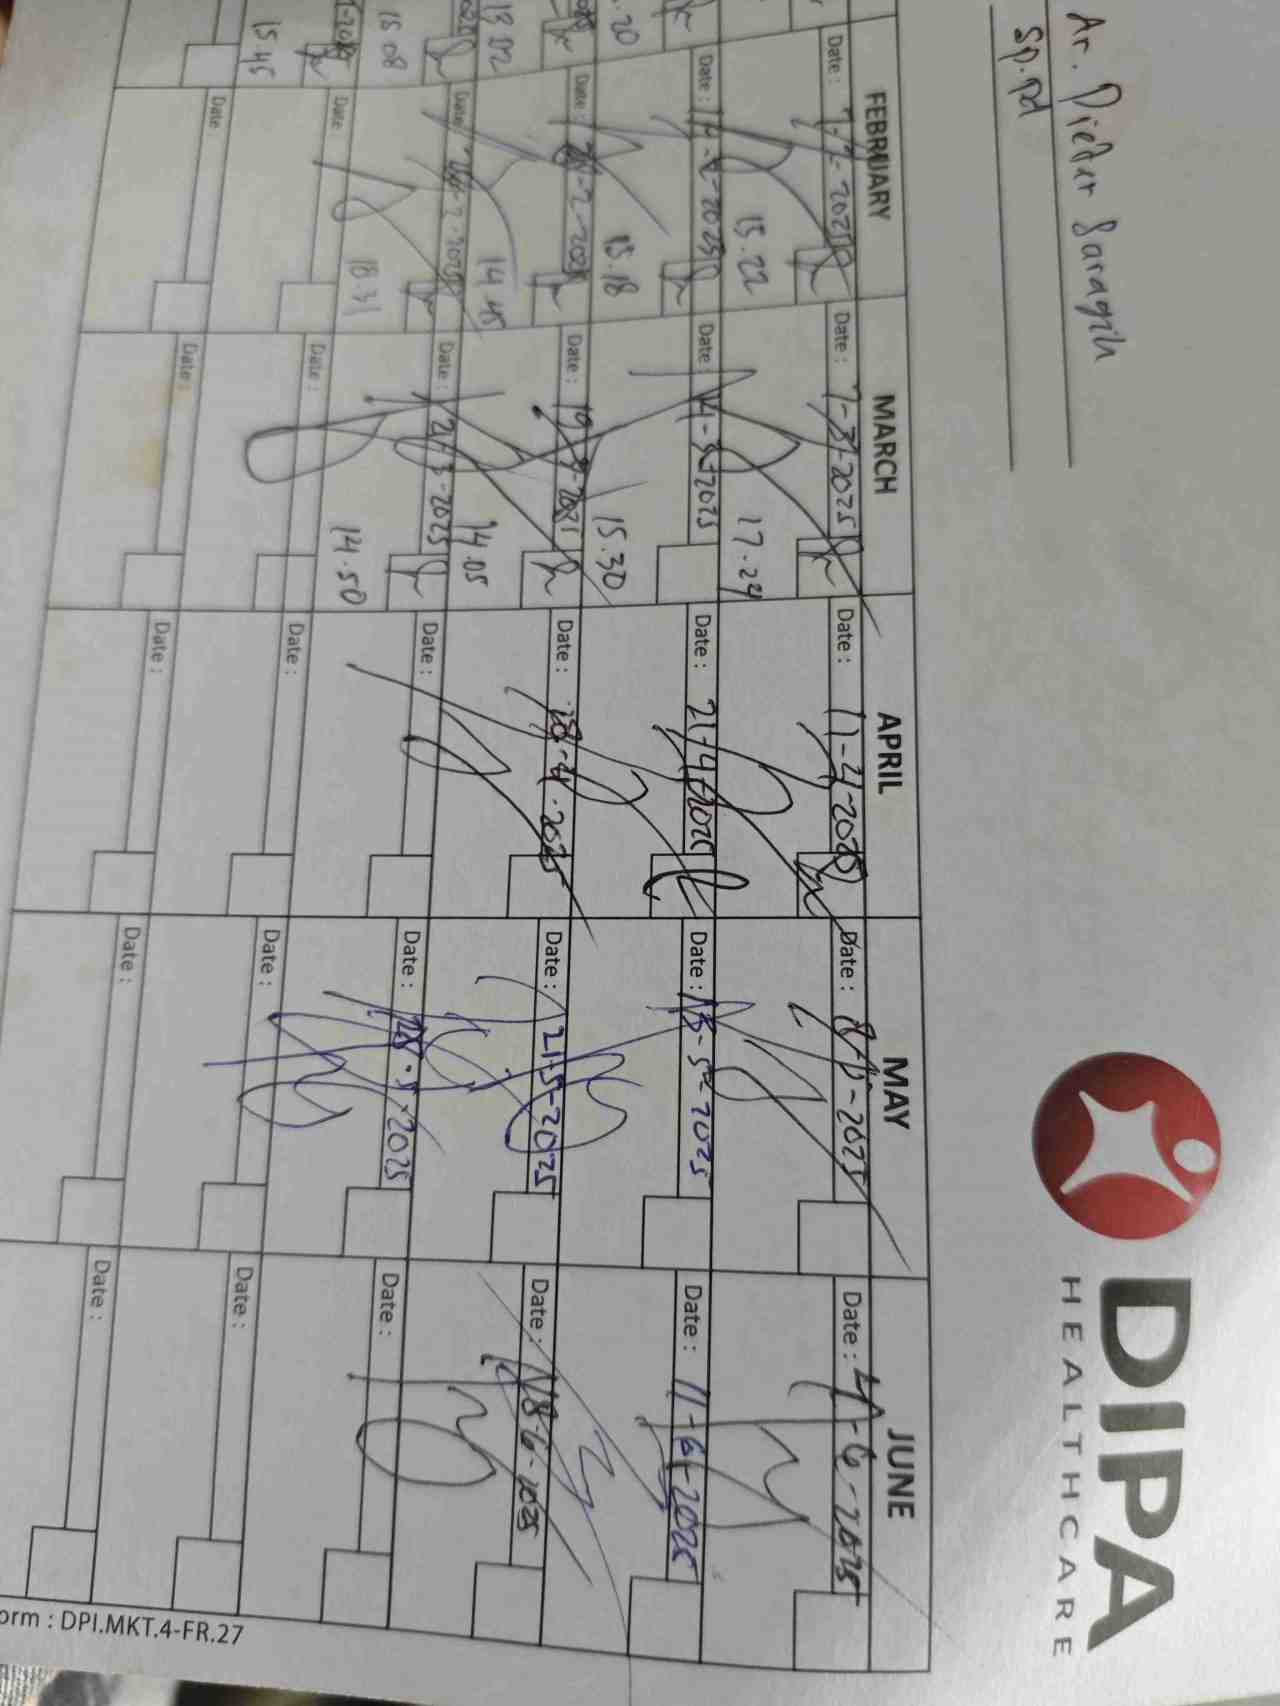 DIPA
HEALTHCARE
Dr. Dieter Saragih
Sp.Pd
FEBRUARY MARCH APRIL MAY JUNE
Date : Date : 7-3-2025 Date : 11-4-2025 Date : 8-5-2025 Date : 4-6-2025
15.22 17.24
Date : 14-2-2025 Date : 14-3-2025 Date : 21-4-2025 Date : 13-5-2025 Date : 11-6-2025
15.18 15.30
Date : Date : 19-3-2025 Date : 28-4-2025 Date : 21-5-2025 Date : 18-6-2025
14.45 14.05
Date : Date : 21-3-2025 Date : Date : 28-5-2025 Date :
18.31 14.50
Date : Date : Date : Date : Date :
Date : Date : Date : Date : Date :
13.02
15.08
15.45
orm : DPI.MKT.4-FR.27